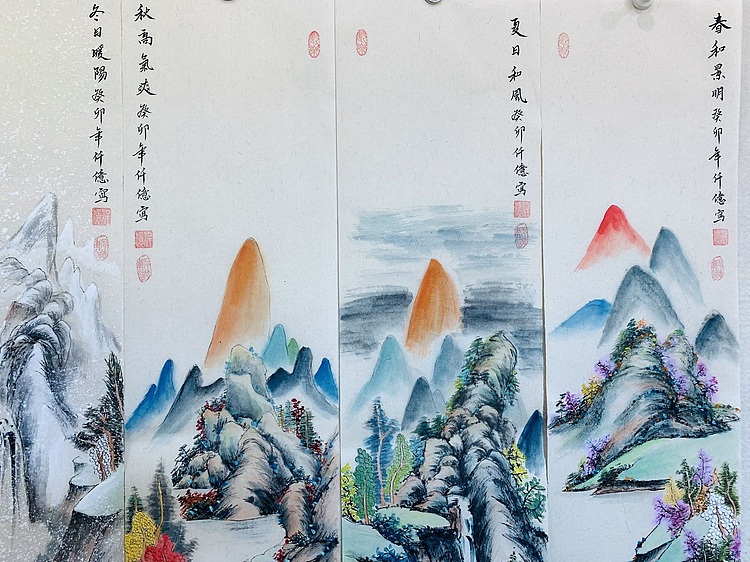 春和景明癸卯年仟億寫
夏日和風癸卯仟億寫
秋高氣爽癸卯年仟億寫
冬日暖陽癸卯年仟億寫